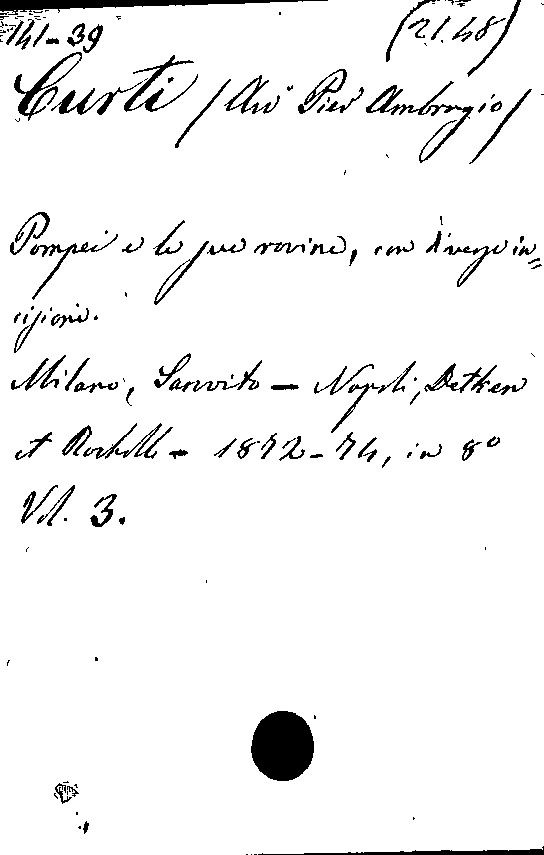 141-39 (21.48)
Curti / Av. Pier Ambrogio /
Pompei e le sue rovine, con diverse in=
cisioni.
Milano, Sanvito — Napoli, Detken
et Rocholl - 1872-74, in 8°
Vol. 3.